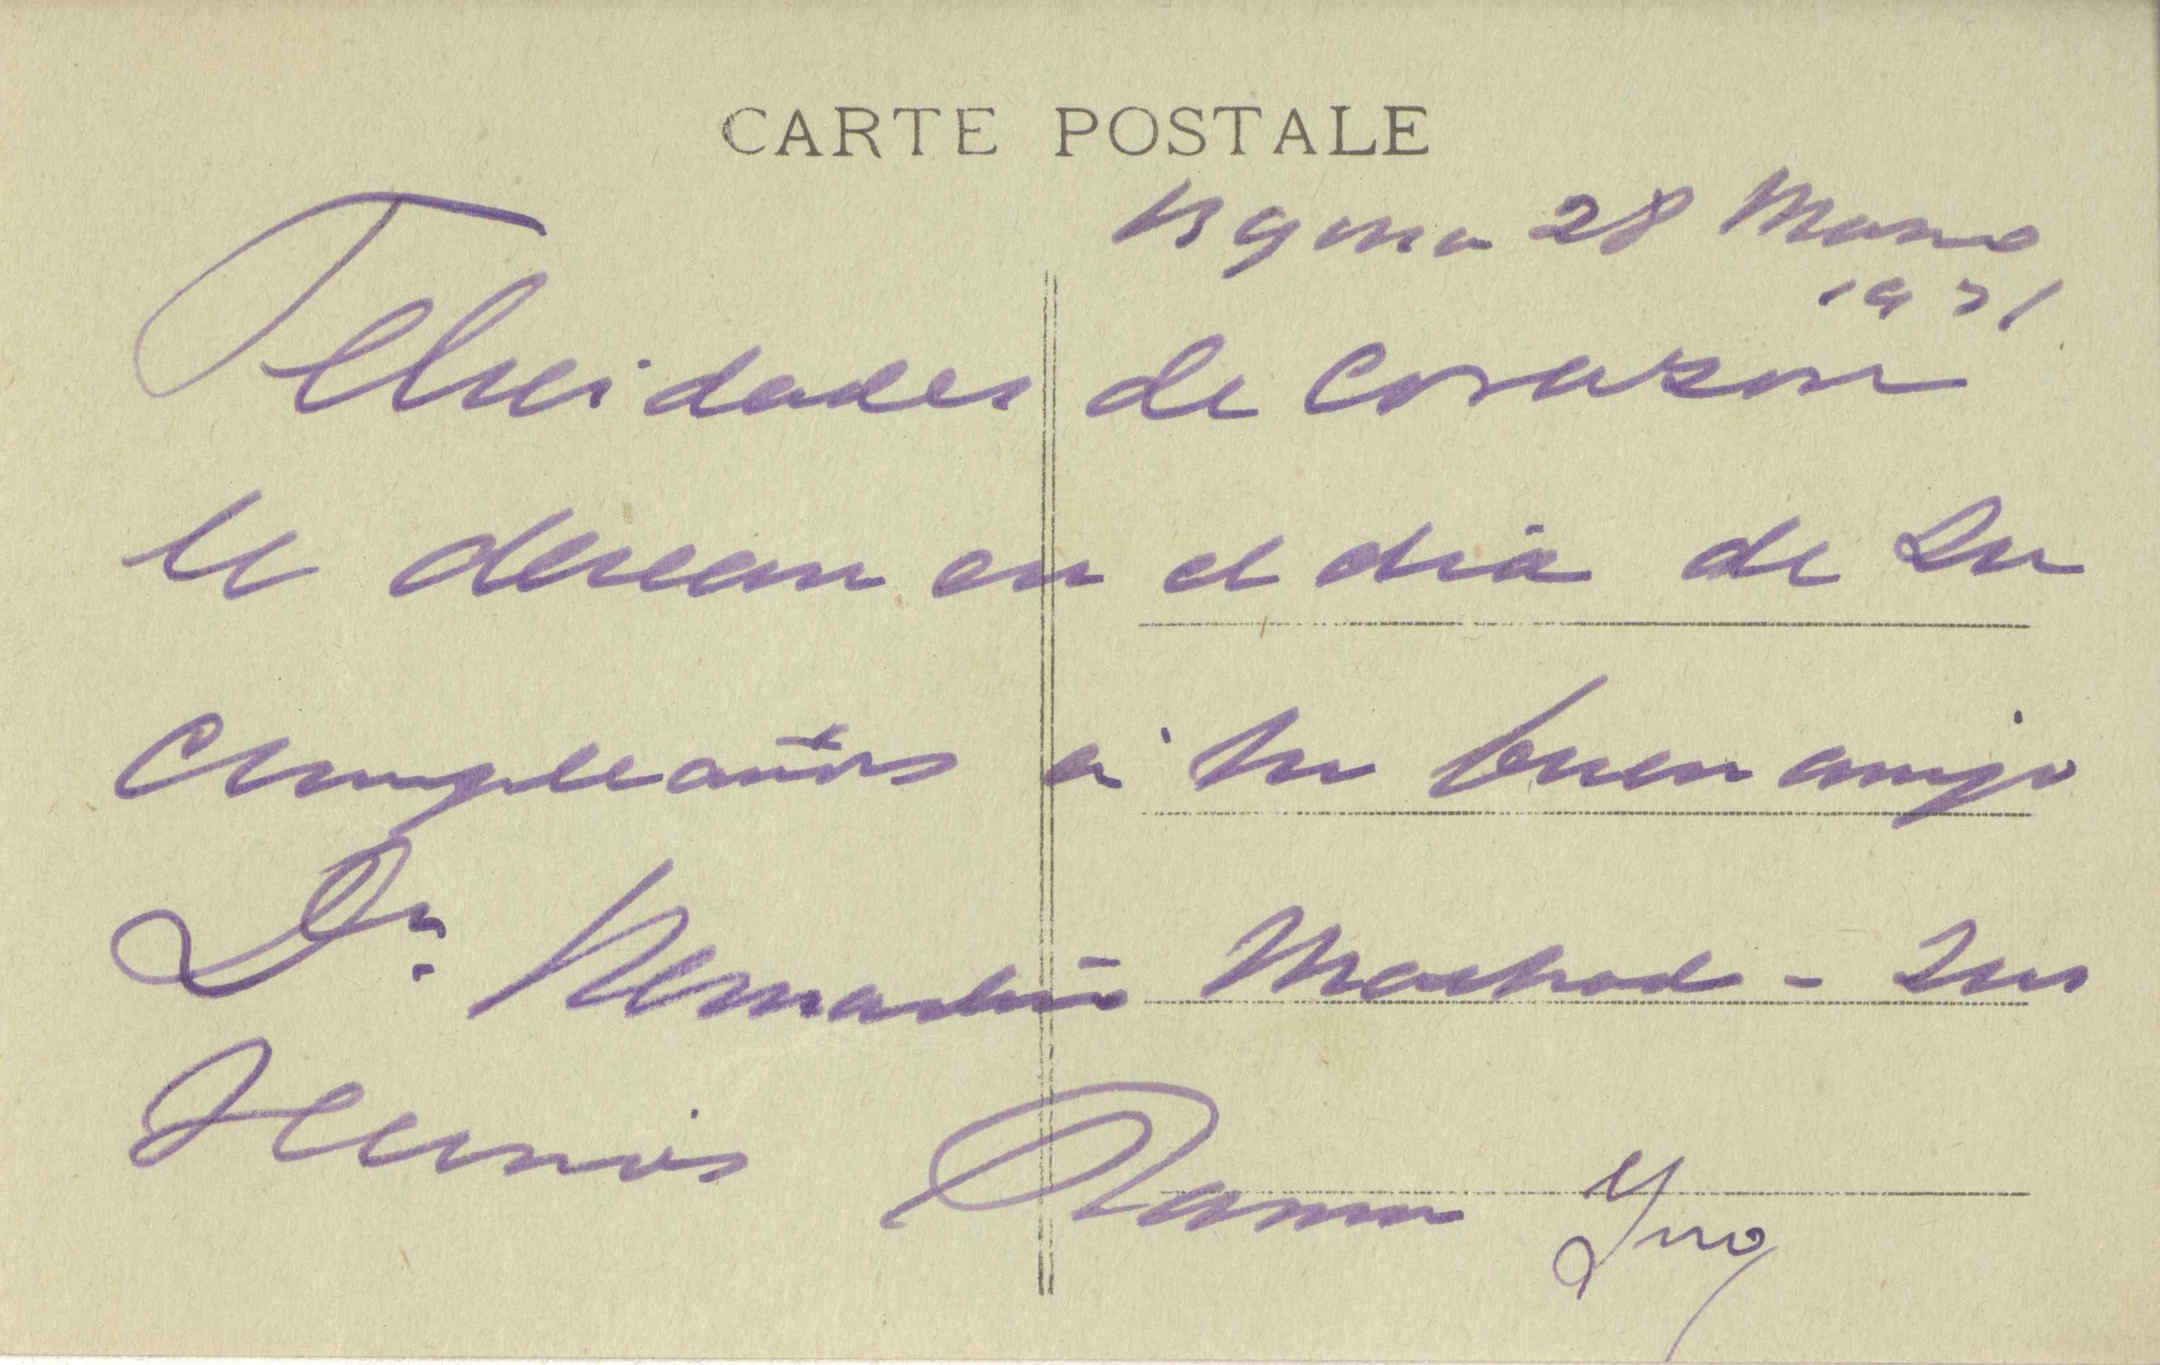 CARTE POSTALE
28 Marzo
1931
Felicidades de corazon
le desean en el dia de su
cumpleaños a su buen amigo
Dr. Bernardino Machado - Sus
Ramon